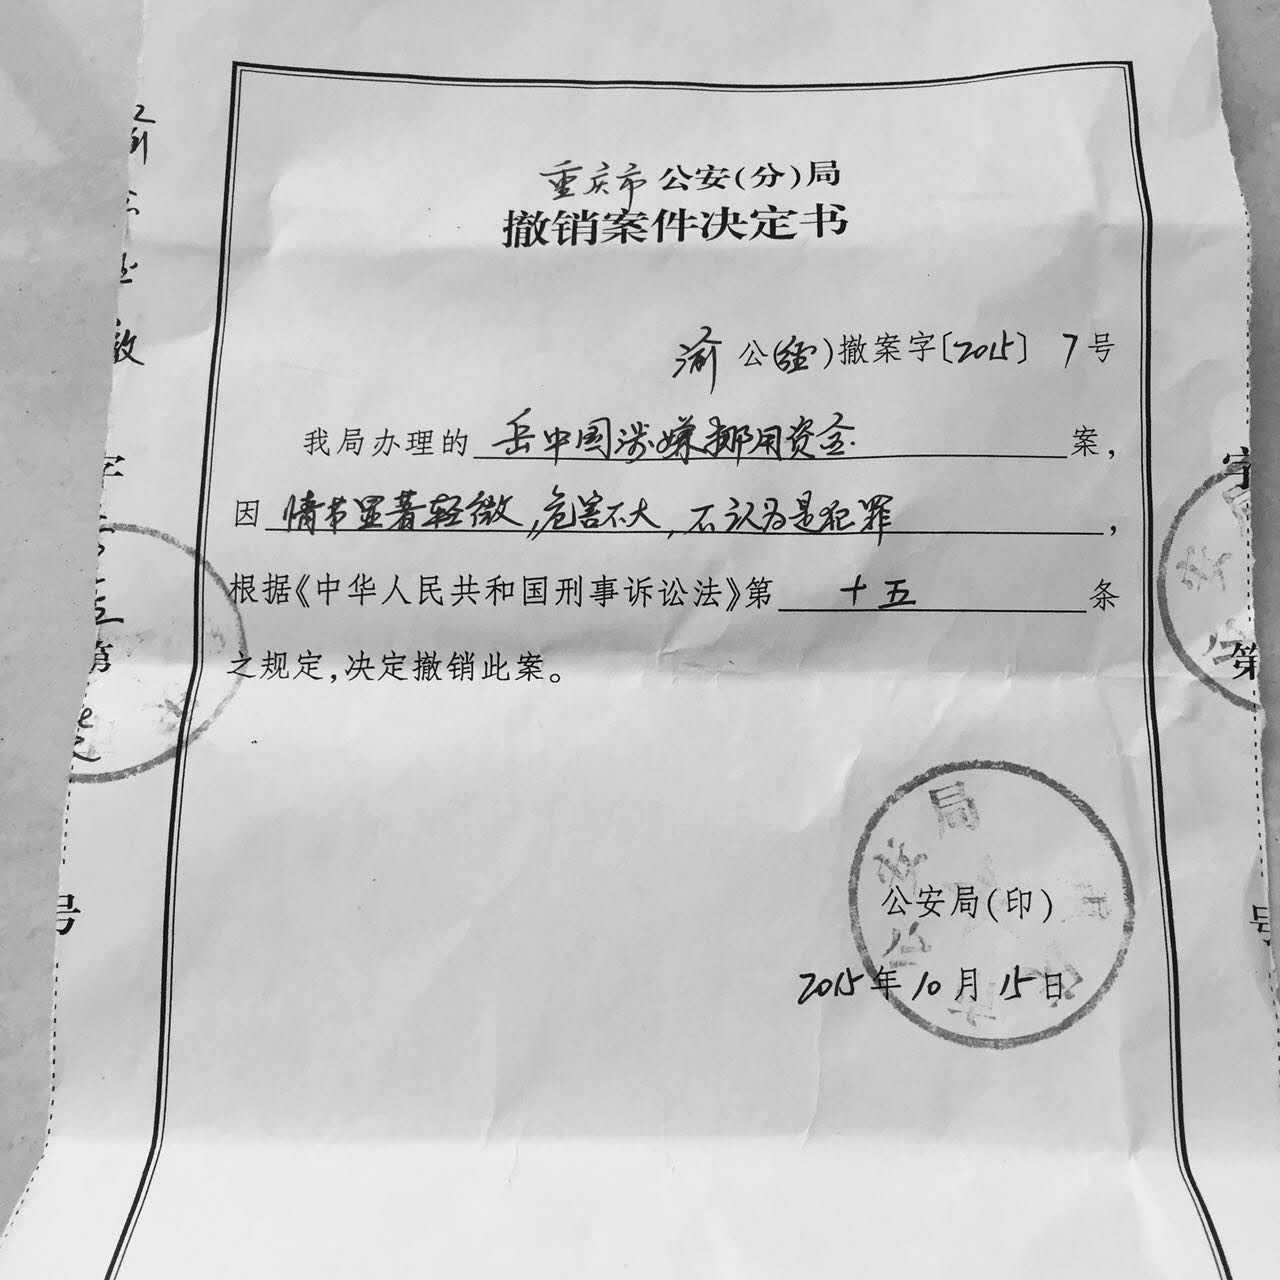 重庆市公安(分)局
撤销案件决定书
渝公(经)撤案字〔2015〕7号
我局办理的 岳中国涉嫌挪用资金 案，
因 情节显著轻微，危害不大，不认为是犯罪，
根据《中华人民共和国刑事诉讼法》第 十五 条
之规定，决定撤销此案。
公安局(印)
2015年10月15日
字
第
号
字
第
号
公安局